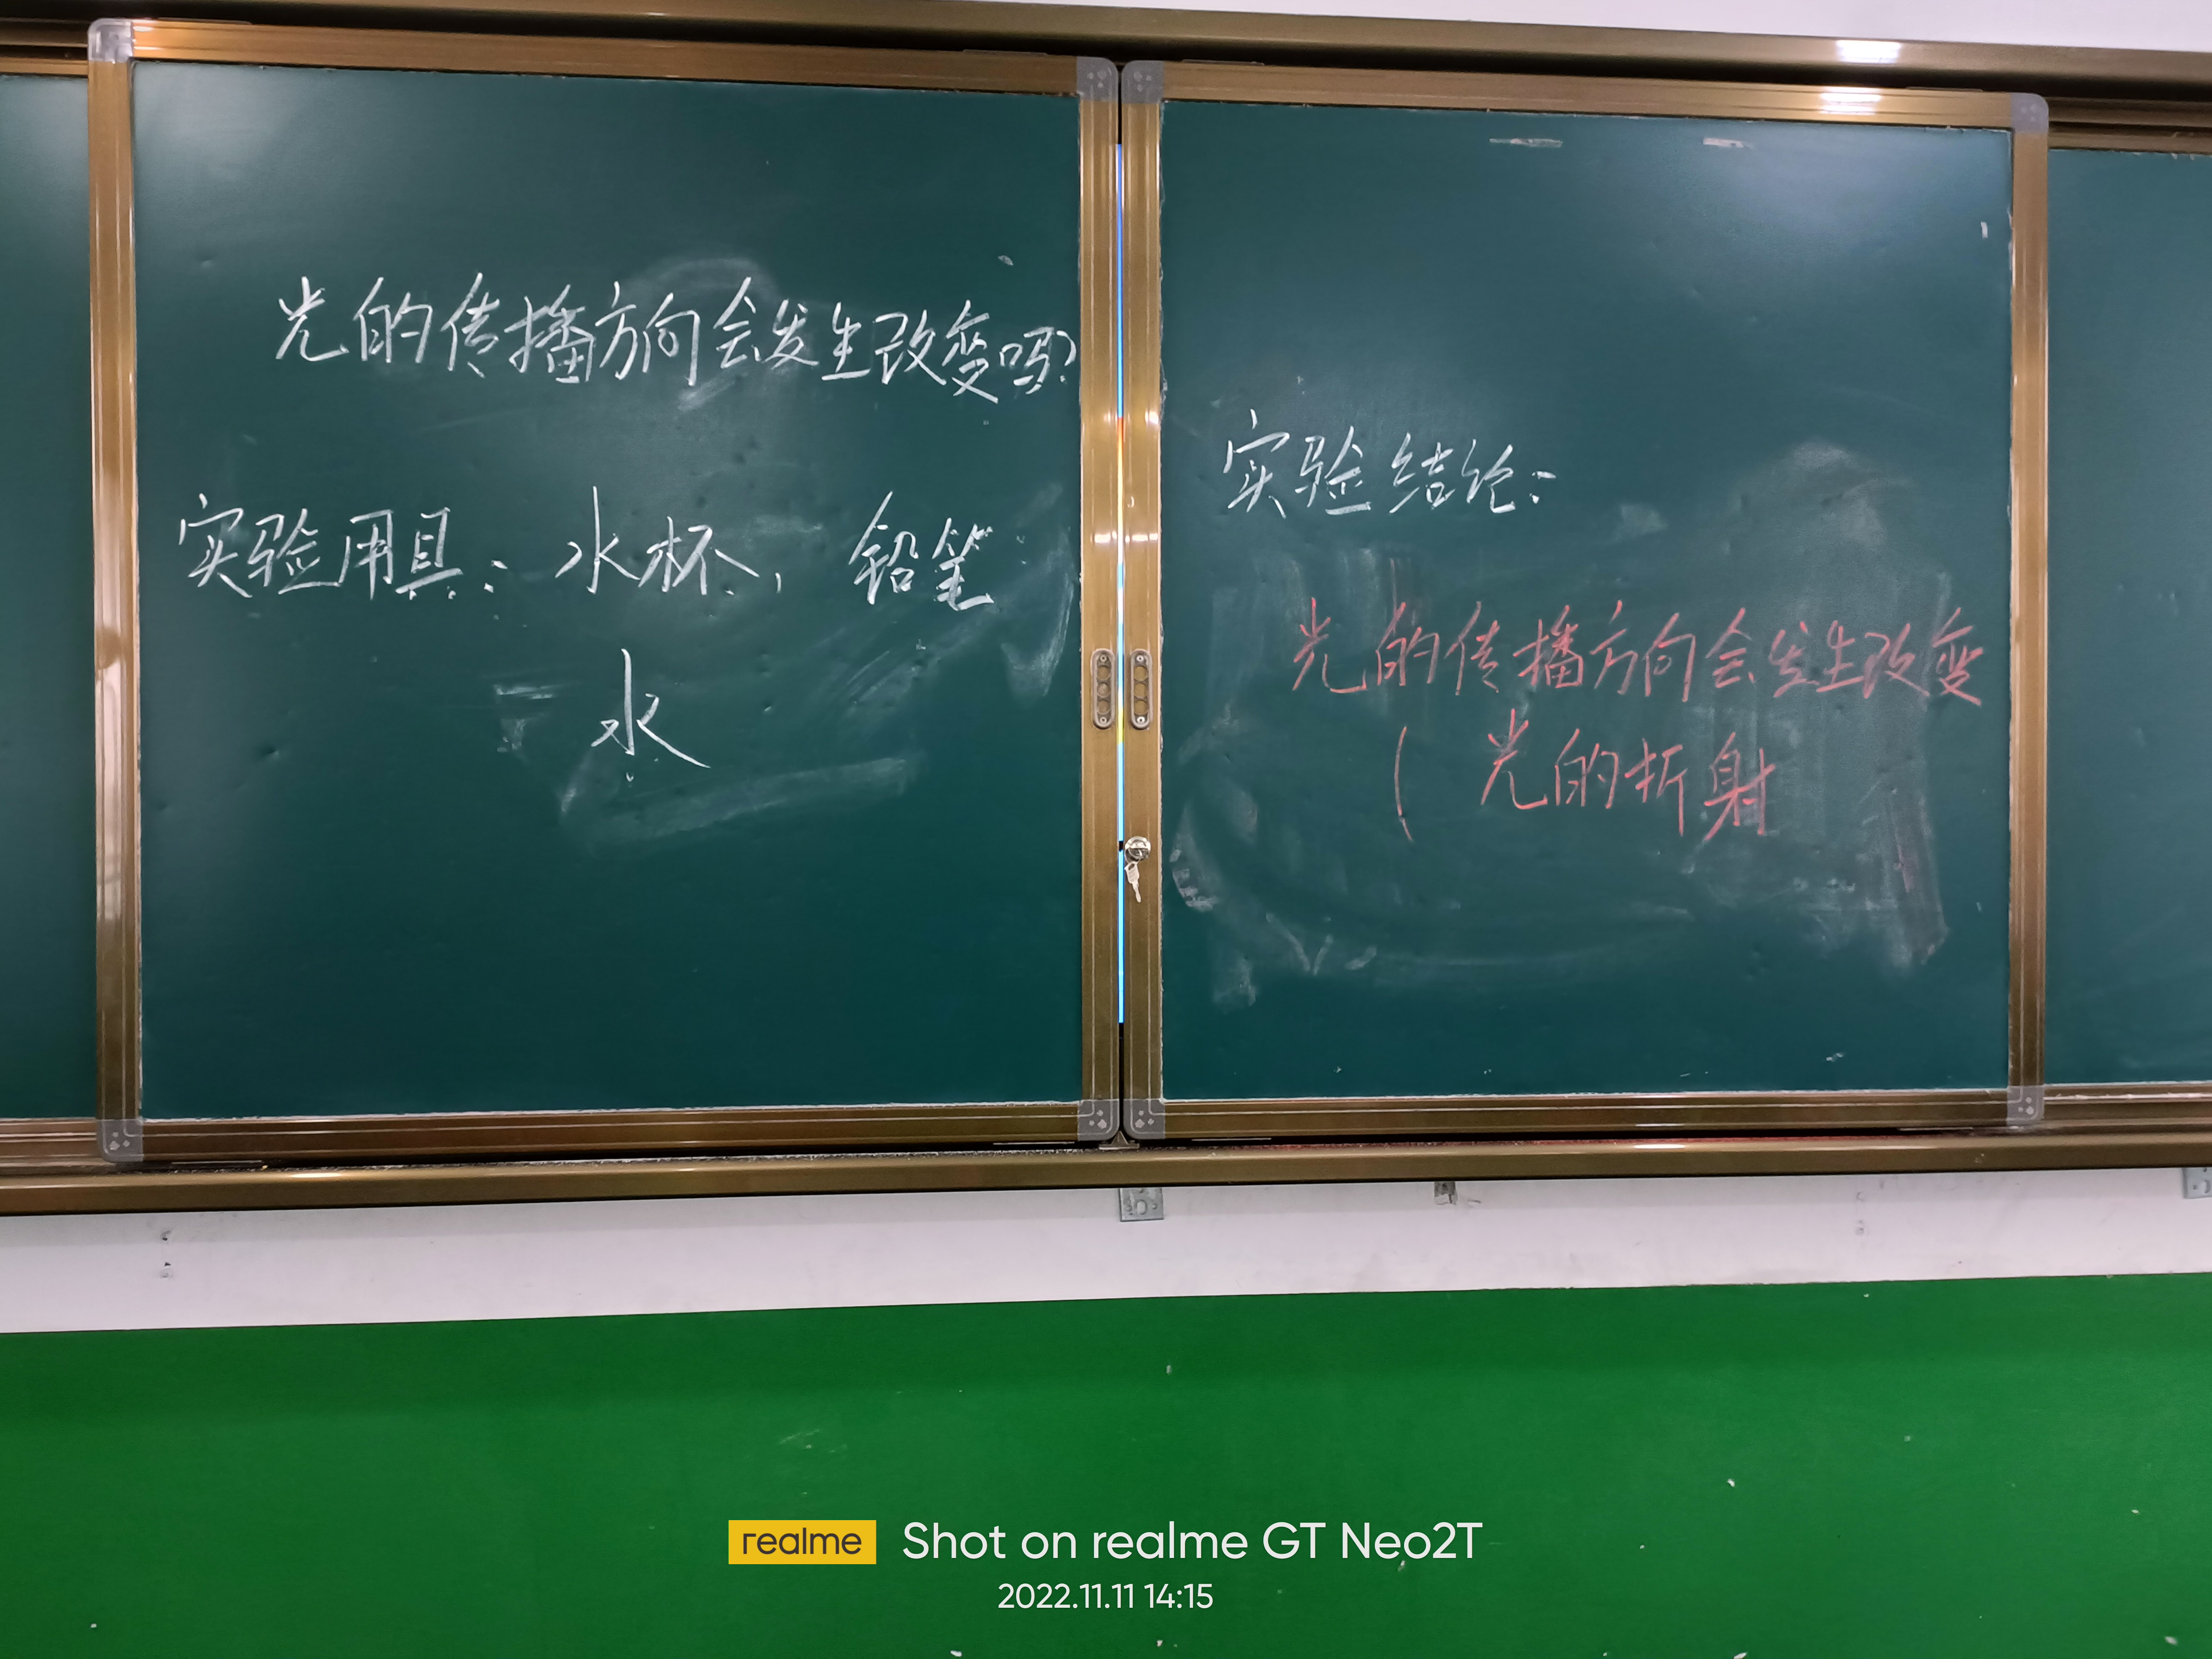 光的传播方向会发生改变吗?
实验用具：水杯，铅笔
水
实验结论：
光的传播方向会发生改变
(光的折射
realme Shot on realme GT Neo2T
2022.11.11 14:15